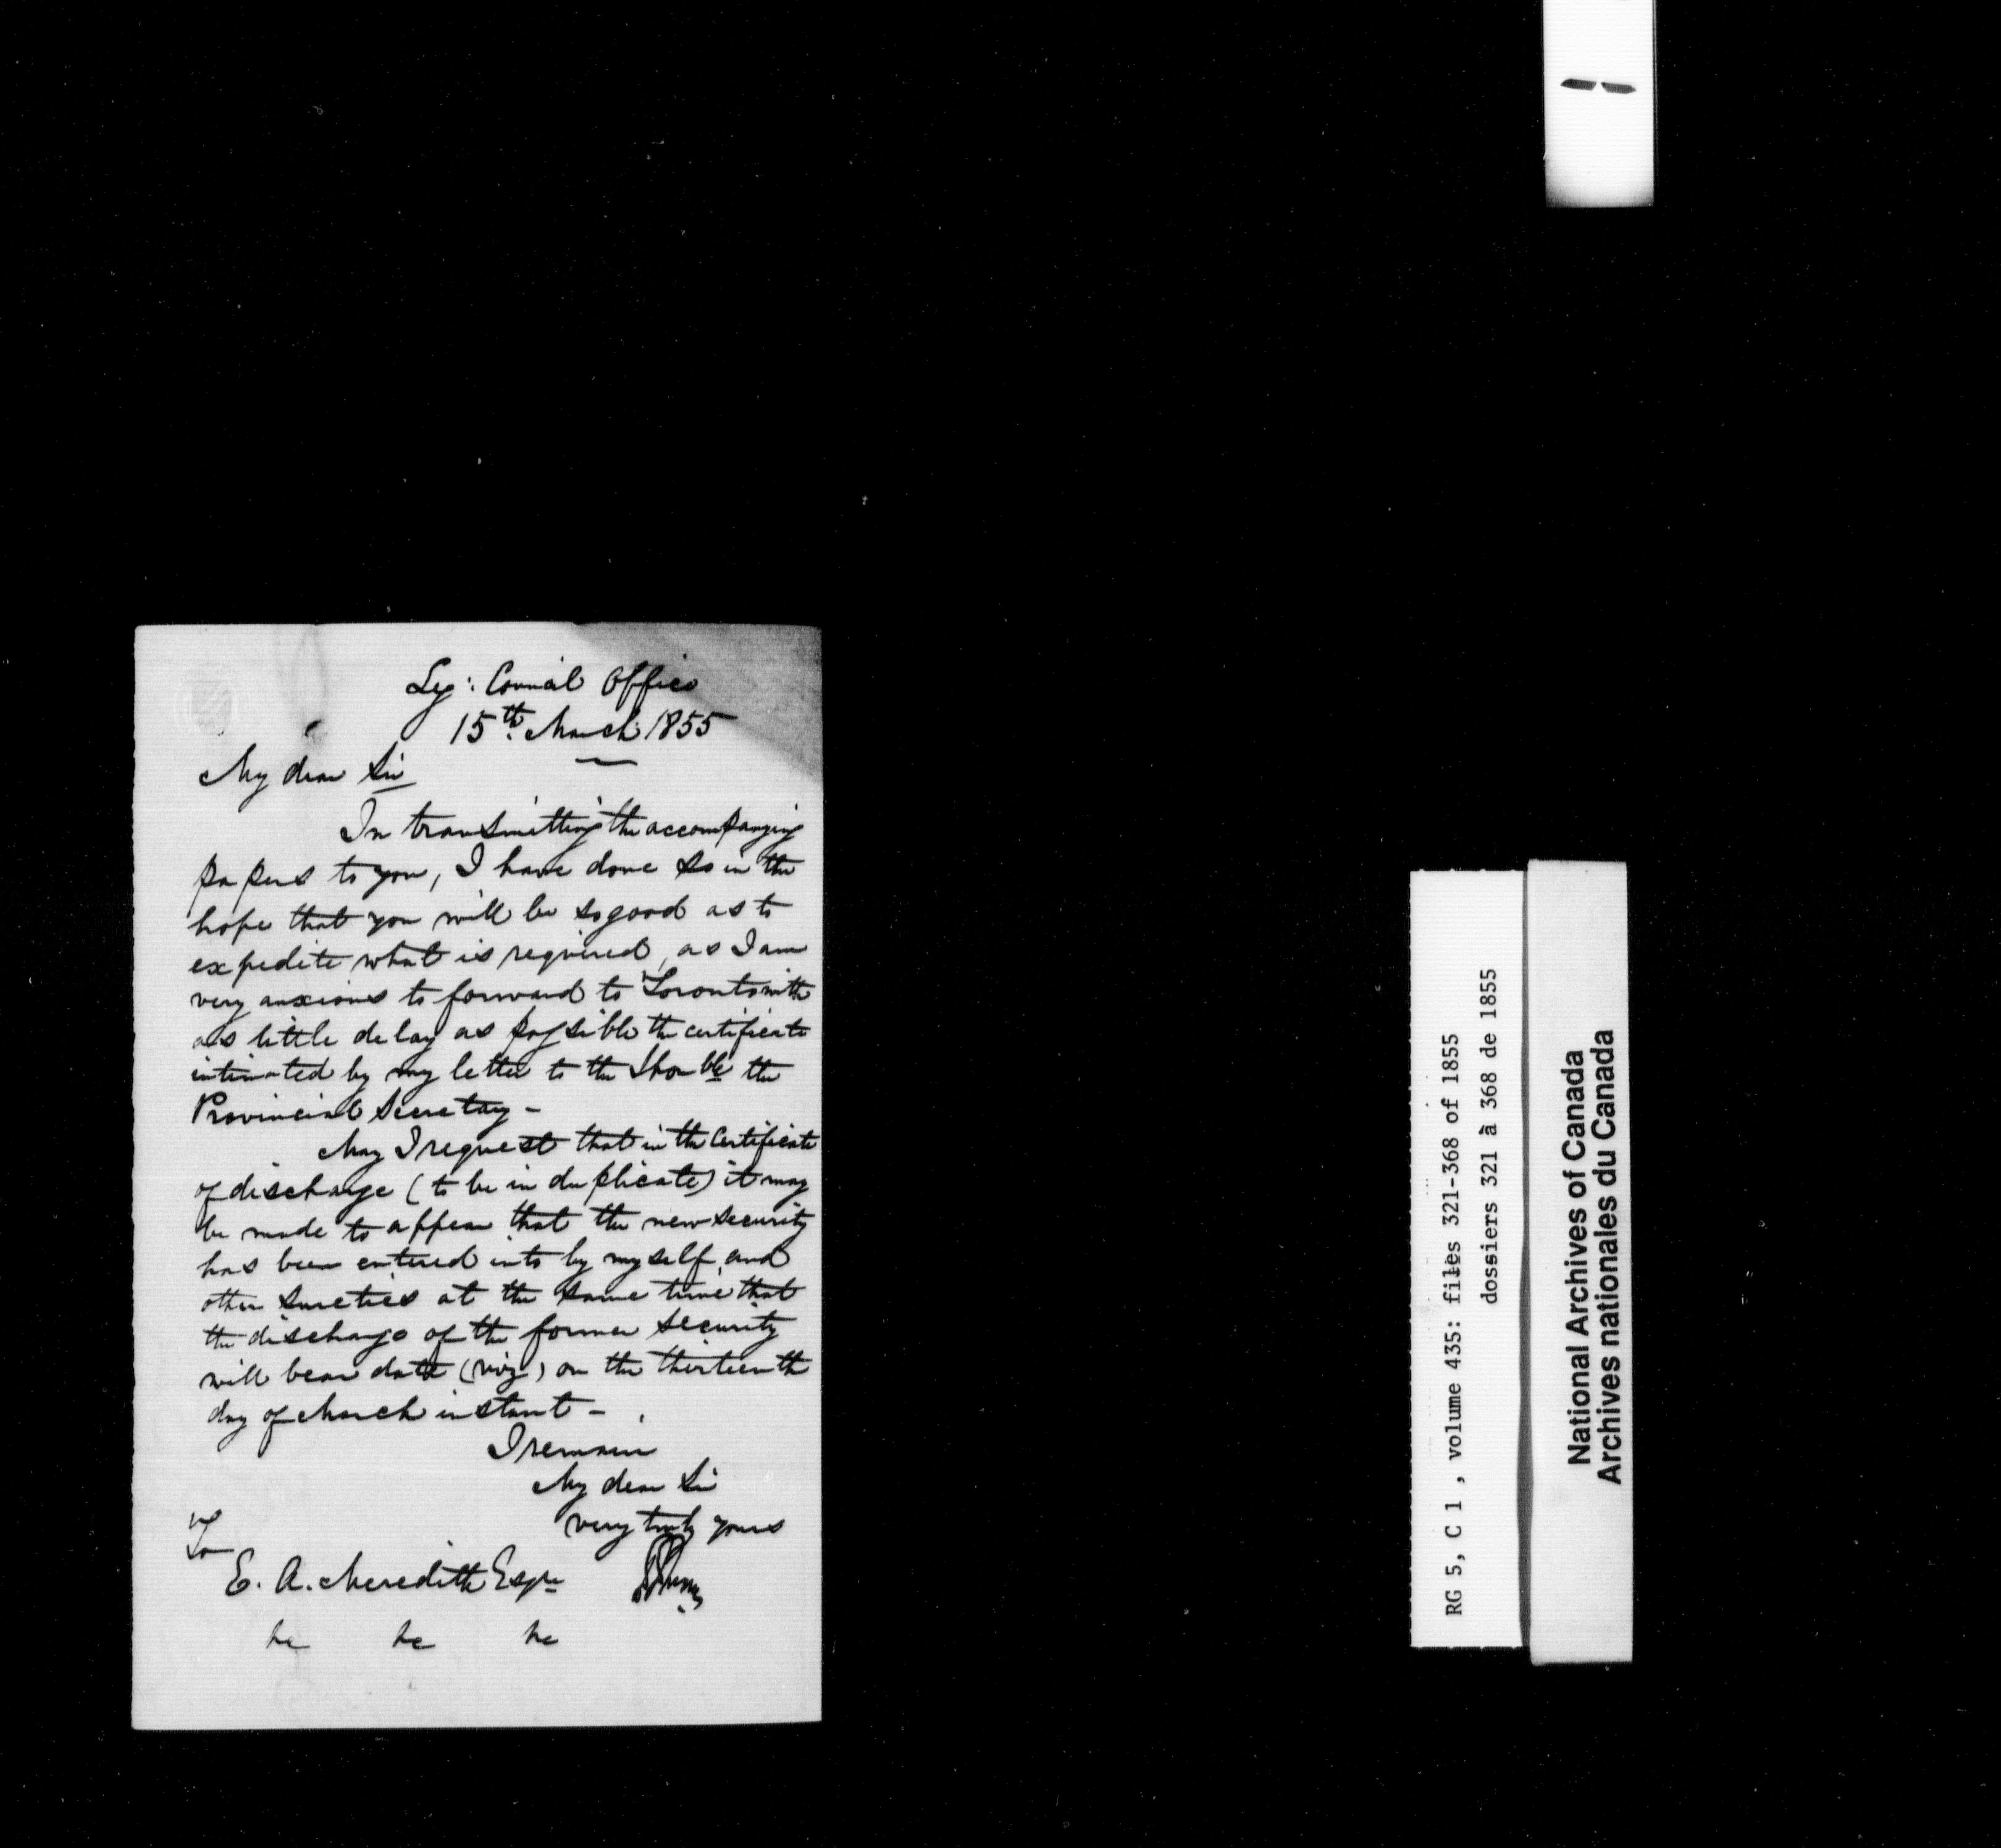 Leg: Council Office
15th March 1855
My dear Sir
In transmitting the accompanying
papers to you, I have done so in the
hope that you will be so good as to
expedite what is required, as I am
very anxious to forward to Toronto with
as little delay as possible the certificate
intimated by my letter to the Honble the
Provincial Secretary -
May I request that in the Certificate
of discharge (to be in duplicate) it may
be made to appear that the new security
has been entered into by myself and
other sureties at the same time that
the discharge of the former security
will bear date (viz) on the thirteenth
day of March instant -
I remain
My dear Sir
very truly yours
To
E. A. Meredith Esqre
&c &c &c
RG 5, C 1 , volume 435: files 321-368 of 1855
dossiers 321 à 368 de 1855
National Archives of Canada
Archives nationales du Canada